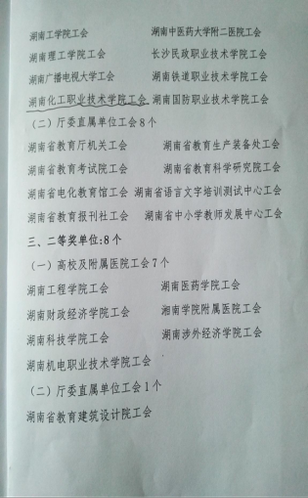 湖南工学院工会 湖南中医药大学附二医院工会
湖南理工学院工会 长沙民政职业技术学院工会
湖南广播电视大学工会 湖南铁道职业技术学院工会
湖南化工职业技术学院工会 湖南国防职业技术学院工会
（二）厅委直属单位工会8个
湖南省教育厅机关工会 湖南省教育生产装备处工会
湖南省教育考试院工会 湖南省教育科学研究院工会
湖南省电化教育馆工会 湖南省语言文字培训测试中心工会
湖南省教育报刊社工会 湖南省中小学教师发展中心工会
三、二等奖单位:8个
（一）高校及附属医院工会7个
湖南工程学院工会 湖南医药学院工会
湖南财政经济学院工会 湘南学院附属医院工会
湖南科技学院工会 湖南涉外经济学院工会
湖南机电职业技术学院工会
（二）厅委直属单位工会1个
湖南省教育建筑设计院工会